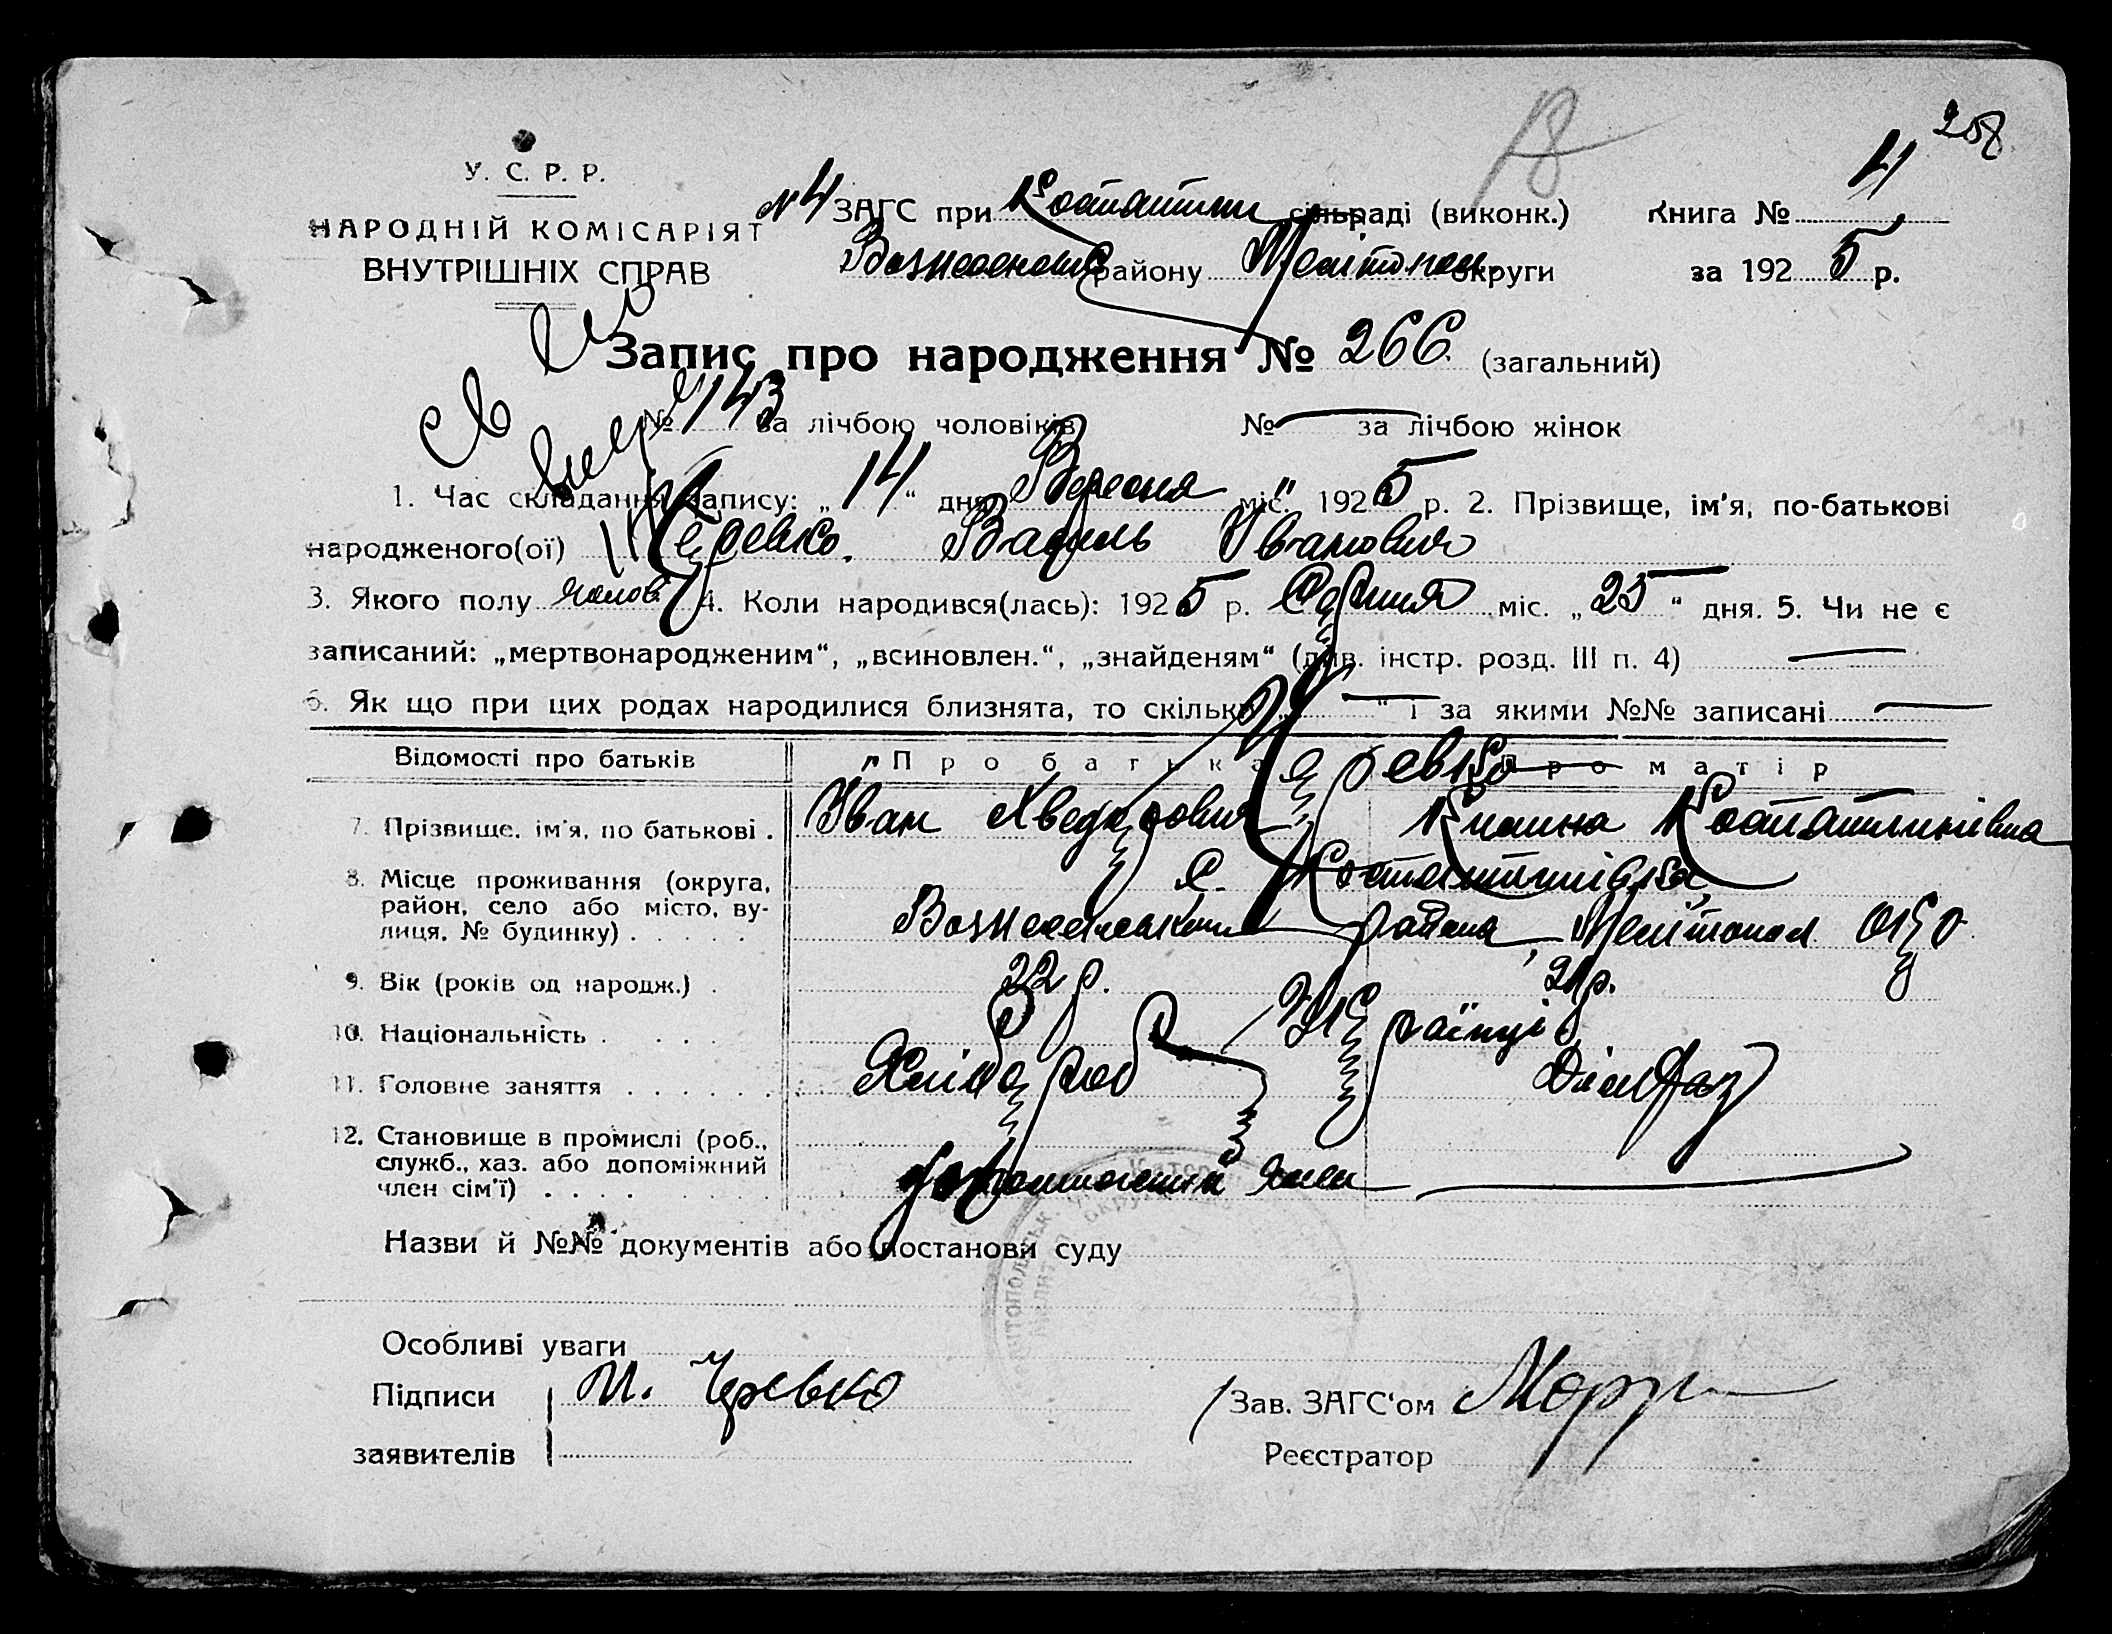 258
У. С. Р. Р.
НАРОДНІЙ КОМІСАРІЯТ
ВНУТРІШНІХ СПРАВ
№ 4 ЗАГС при Костантин сільраді (виконк.) Книга № 4
Вознесенськ району Мелітопол округи за 1925 р.
Запис про народження № 266 (загальний)
№ 143 за лічбою чоловіків № за лічбою жінок
1. Час складання запису: „14“ дня Вересня міс. 1925 р. 2. Прізвище, ім'я, по-батькові
народженого(ої) Черевко Василь Іванович
3. Якого полу чолов. 4. Коли народився(лась): 1925 р. Серпня міс. „25“ дня. 5. Чи не є
записаний: „мертвонародженим“, „всиновлен.“, „знайденям“ (див. інстр. розд. III п. 4)
6. Як що при цих родах народилися близнята, то скільки „ “ і за якими №№ записані
Відомості про батьків Про батька Про матір
Черевко
7. Прізвище, ім'я, по батькові . Іван Хведорович Костантинівна
8. Місце проживання (округа, район, село або місто, ву-лиця, № будинку) . . . . . с. Костантинівка
Вознесенського района Мелітопол окр
9. Вік (років од народж.) . 22 р. 21 р.
10. Національність . . . . Українці
11. Головне заняття . . . . . . Хлібороб
12. Становище в промислі (роб.,
служб., хаз. або допоміжний
член сім'ї) . . . . допомогаючий член
Назви й №№ документів або постанови суду
Особливі уваги
Підписи И. Чревко Зав. ЗАГС'ом
заявителів Реєстратор